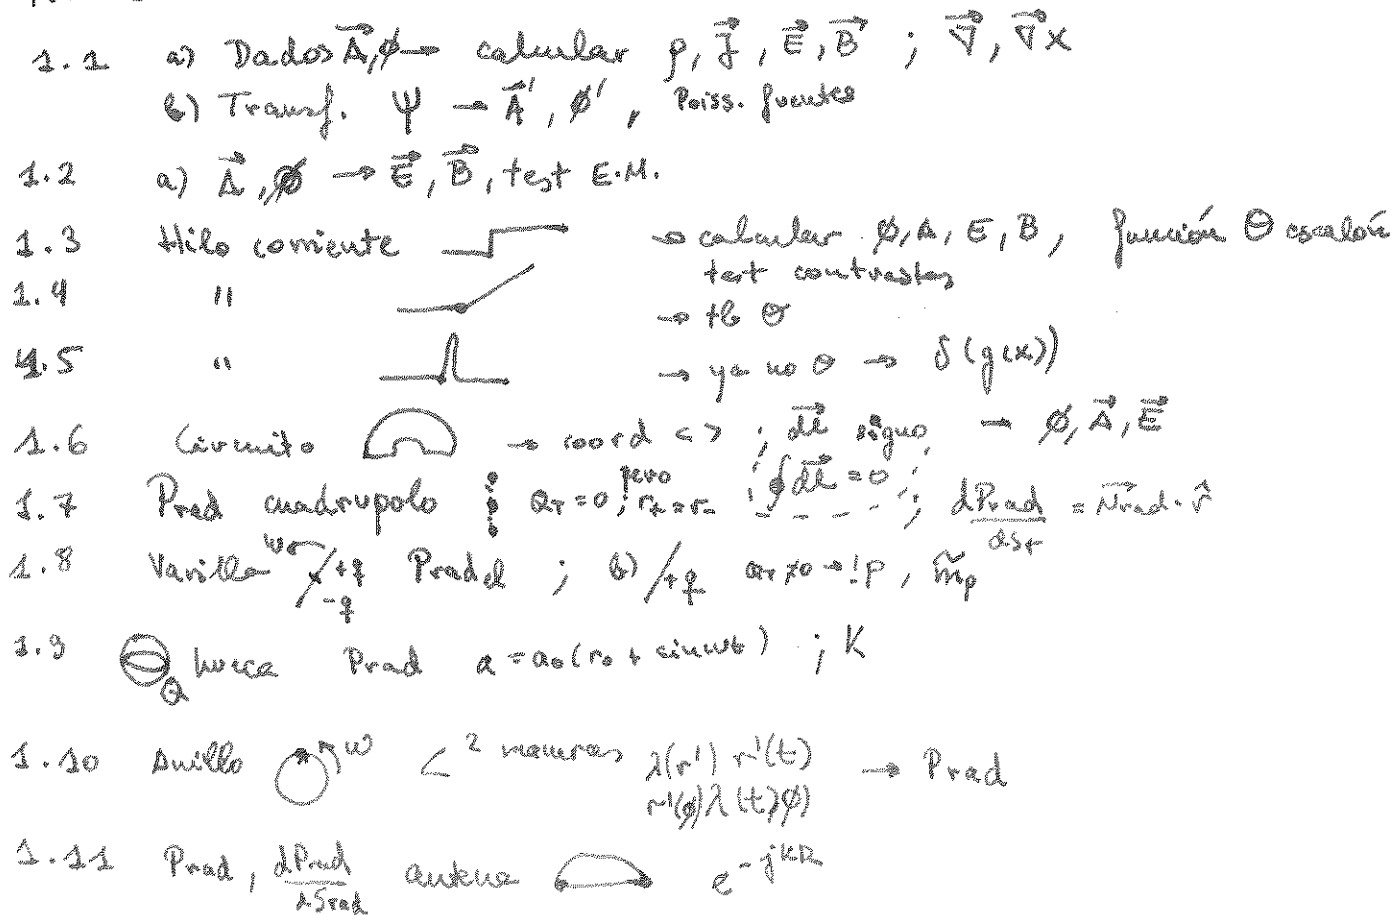 1.1 a) Dados A⃗,ϕ → calcular ρ, J⃗, E⃗, B⃗ ; ∇⃗, ∇⃗x
b) Transf. Ψ → A⃗', ϕ' , Poiss. fuentes
1.2 a) A⃗, ϕ → E⃗, B⃗, test E.M.
1.3 Hilo corriente → calcular ϕ, A, E, B, función Θ escalón
test contrastes
1.4 " → tb Θ
1.5 " → ya no Θ → δ(g(x))
1.6 Circuito → coord < > ; dl⃗ signo → ϕ, A⃗, E⃗
1.7 Prad cuadrupolo QT=0 ; pero r+=r- ∮dl⃗=0 ; dPrad/dSr = N⃗rad · r̂
1.8 Varilla ω +q -q Prad ; b) +q QT≠0 → !p , m̃p
1.9 Q hueca Prad a = a0(r0 + sinωt) ; K
1.10 Anillo ω < 2 maneras λ(r') r'(t) → Prad
r'(ϕ) λ(t,ϕ)
1.11 Prad, dPrad/dSrad antena e^-jkR